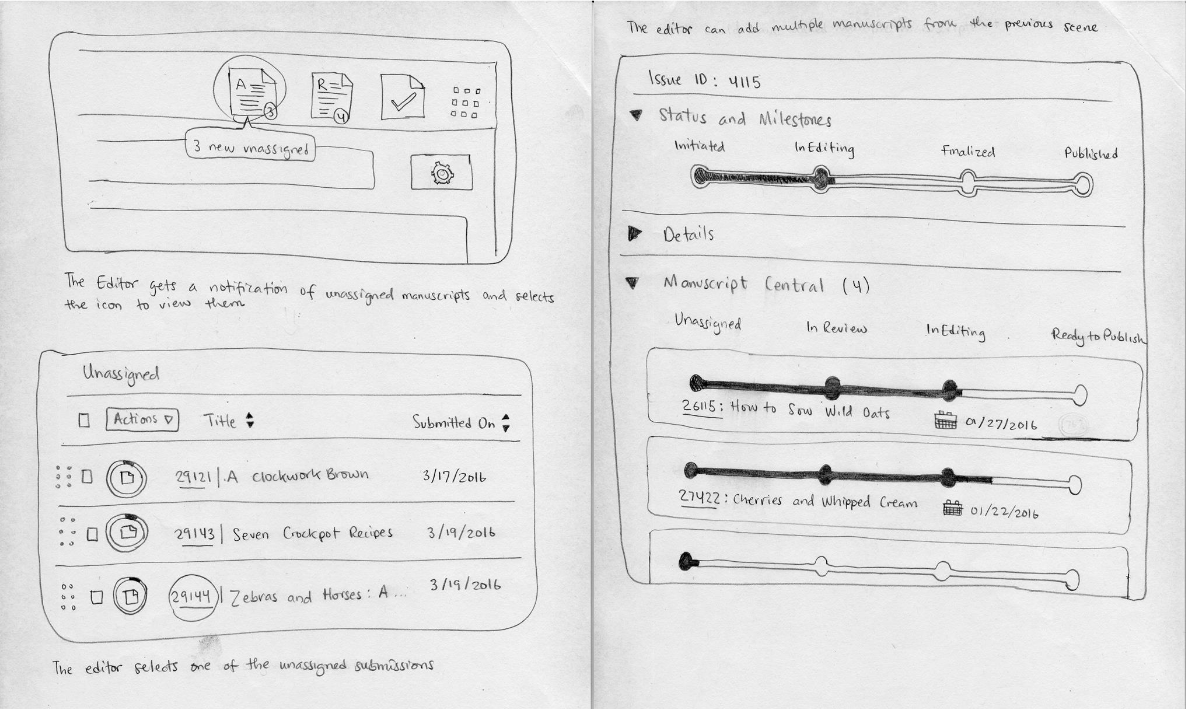 A
3
R
4
3 new unassigned
The Editor gets a notification of unassigned manuscripts and selects
the icon to view them
Unassigned
Actions
Title
Submitted On
29121 | A Clockwork Brown
3/17/2016
29143 | Seven Crockpot Recipes
3/19/2016
29144 | Zebras and Horses: A ...
3/19/2016
The editor selects one of the unassigned submissions
The editor can add multiple manuscripts from the previous scene
Issue ID: 4115
Status and Milestones
Initiated
In Editing
Finalized
Published
Details
Manuscript Central (4)
Unassigned
In Review
In Editing
Ready to Publish
26115: How to Sow Wild Oats
01/27/2016
27422: Cherries and Whipped Cream
01/22/2016